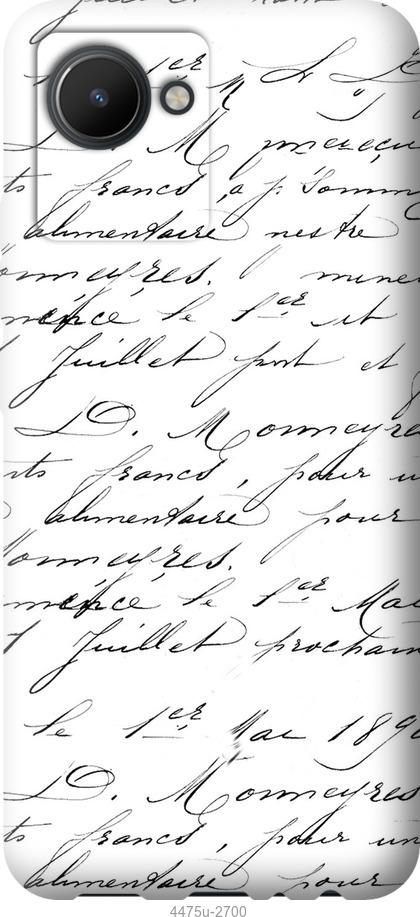 1er M
D. M
ts francs, a
alimentaire nestre
onneyres.
mence le 1er et
Juillet port et
D. Monneyre
nts francs, pour u
alimentaire pour
onneyres.
mence le 1er Mai
Juillet prochain
le 1er Mai 189
D. Monneyres
ts francs, pour un
alimentaire pour
4475u-2700